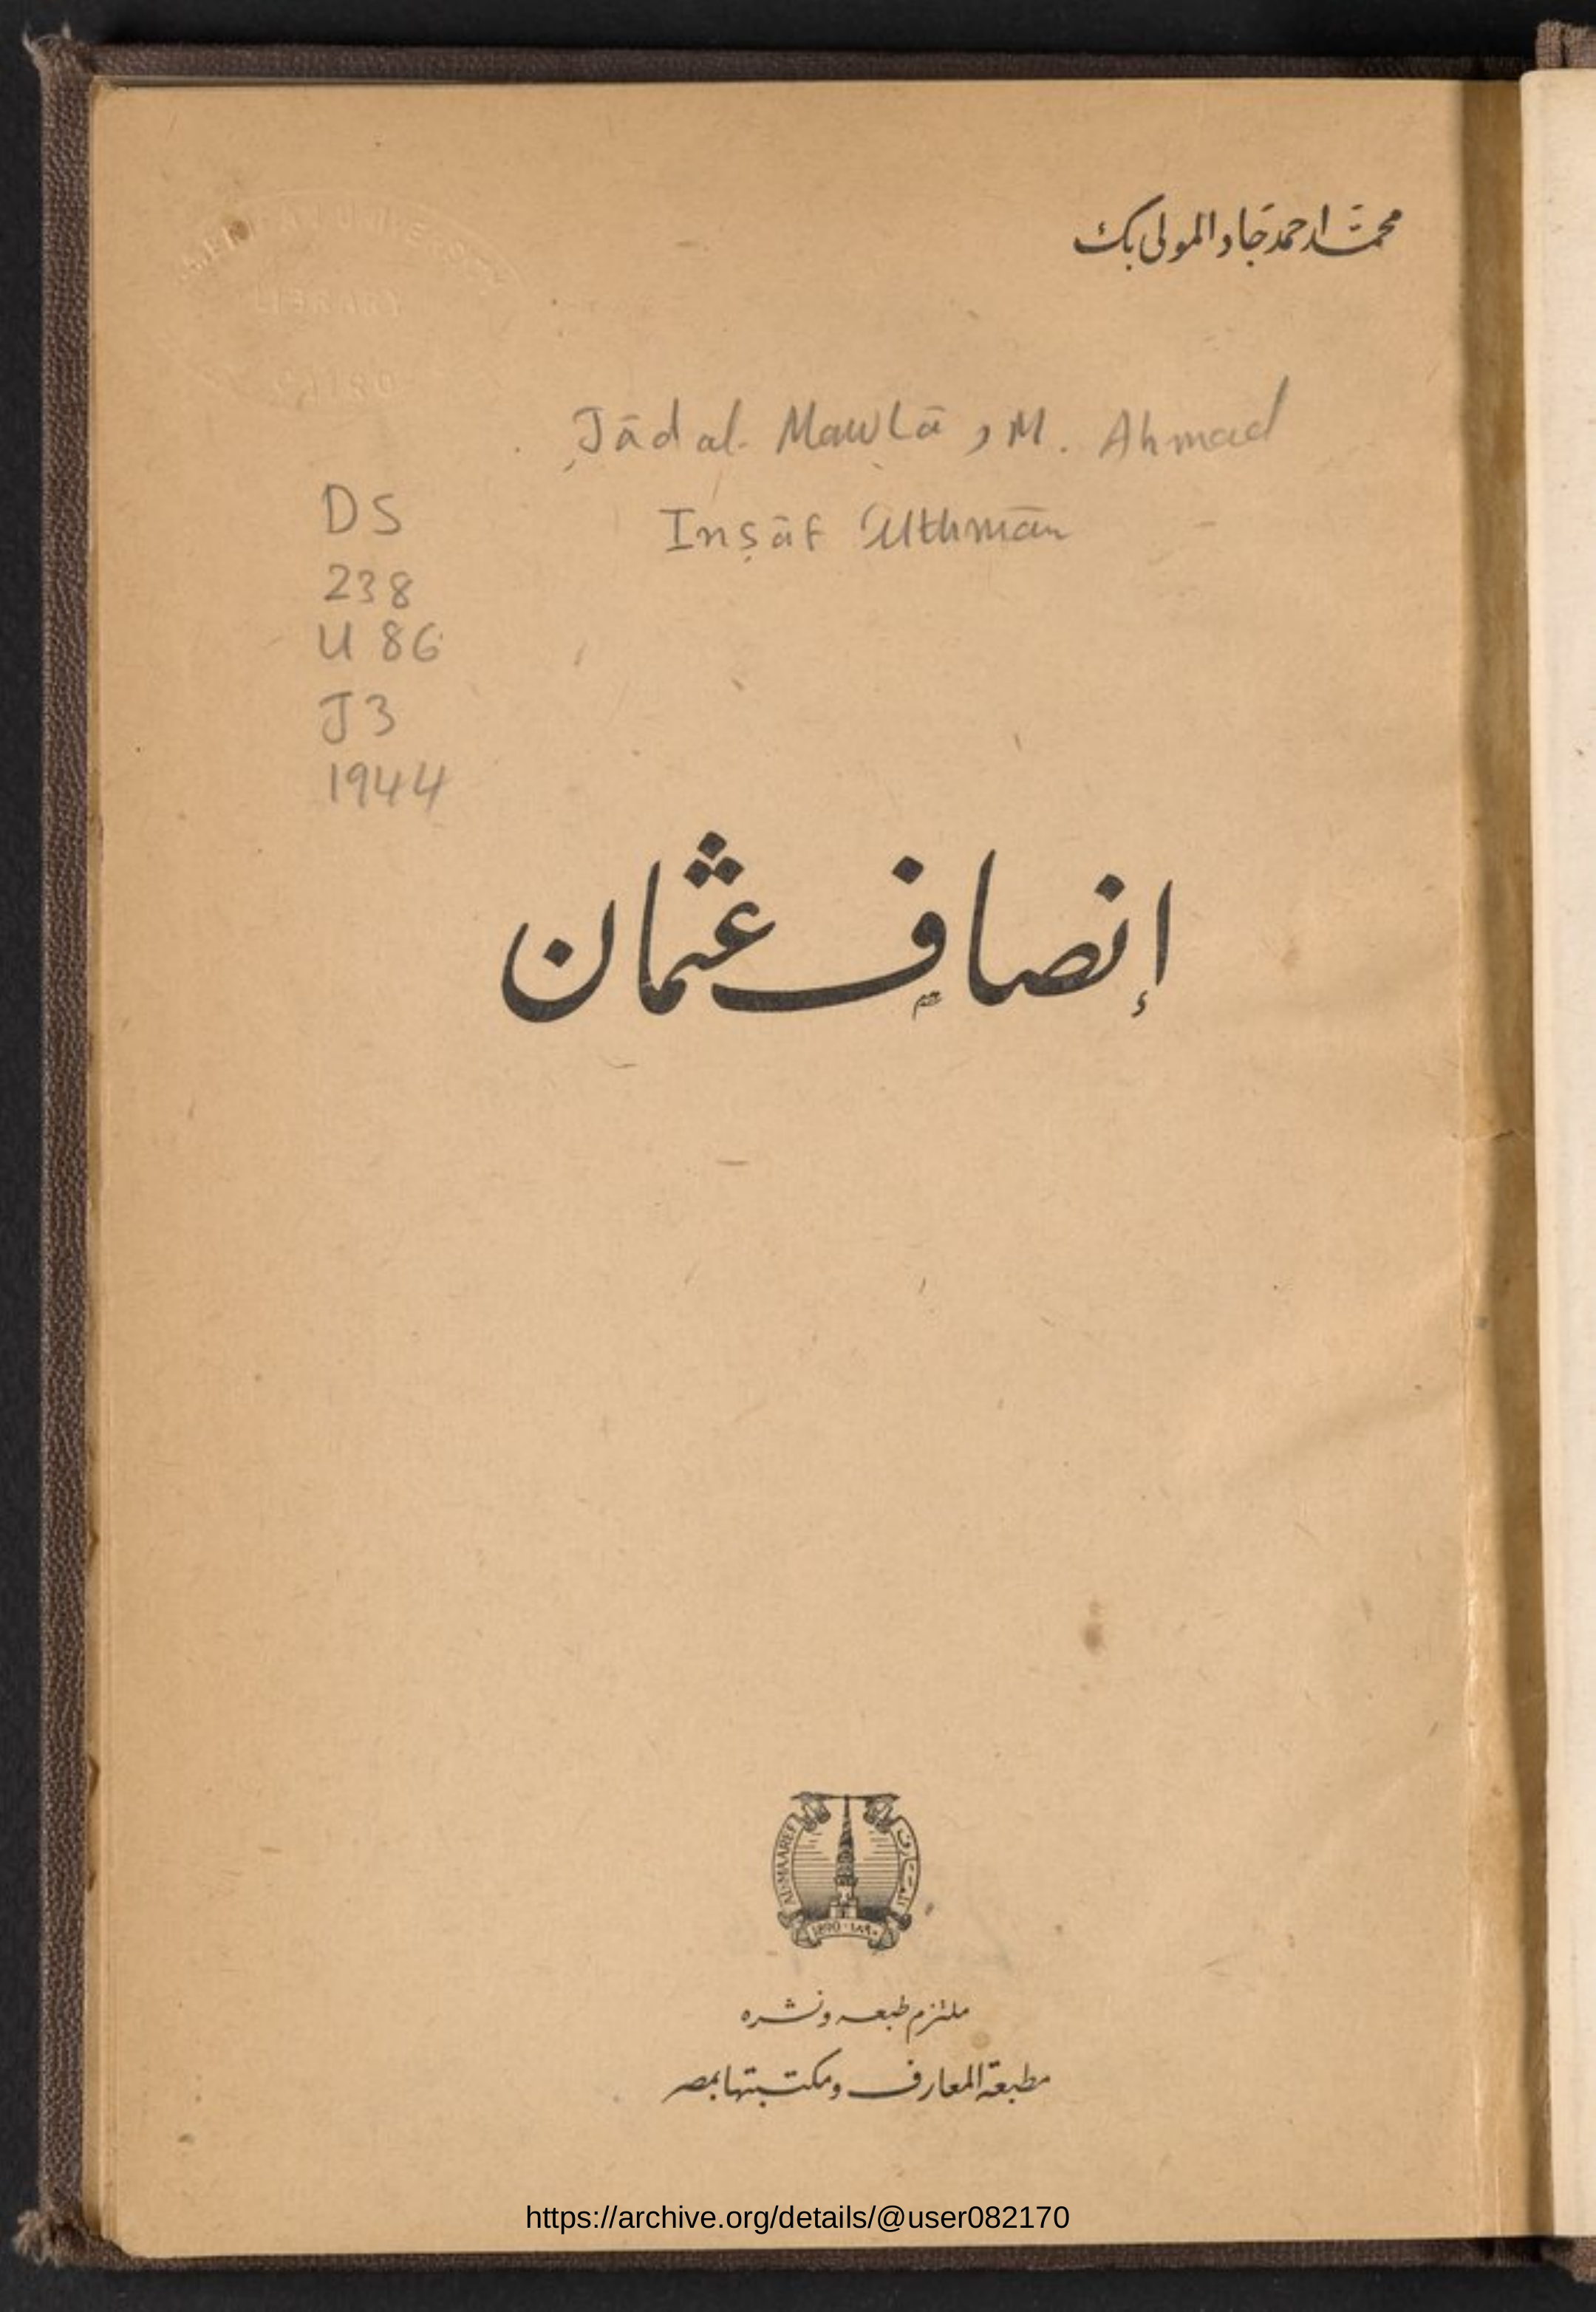 محمّد احمد جاد المولى بك
AMERICAN UNIVERSITY
LIBRARY
CAIRO
Jād al-Mawlā, M. Ahmad
Inṣāf ʿUthmān
DS
238
U 86
J3
1944
إنصاف عثمان
AL-MAAREF
المعارف
1890 - ١٨٩٠
ملتزم طبعه ونشره
مطبعة المعارف ومكتبتها بمصر
https://archive.org/details/@user082170